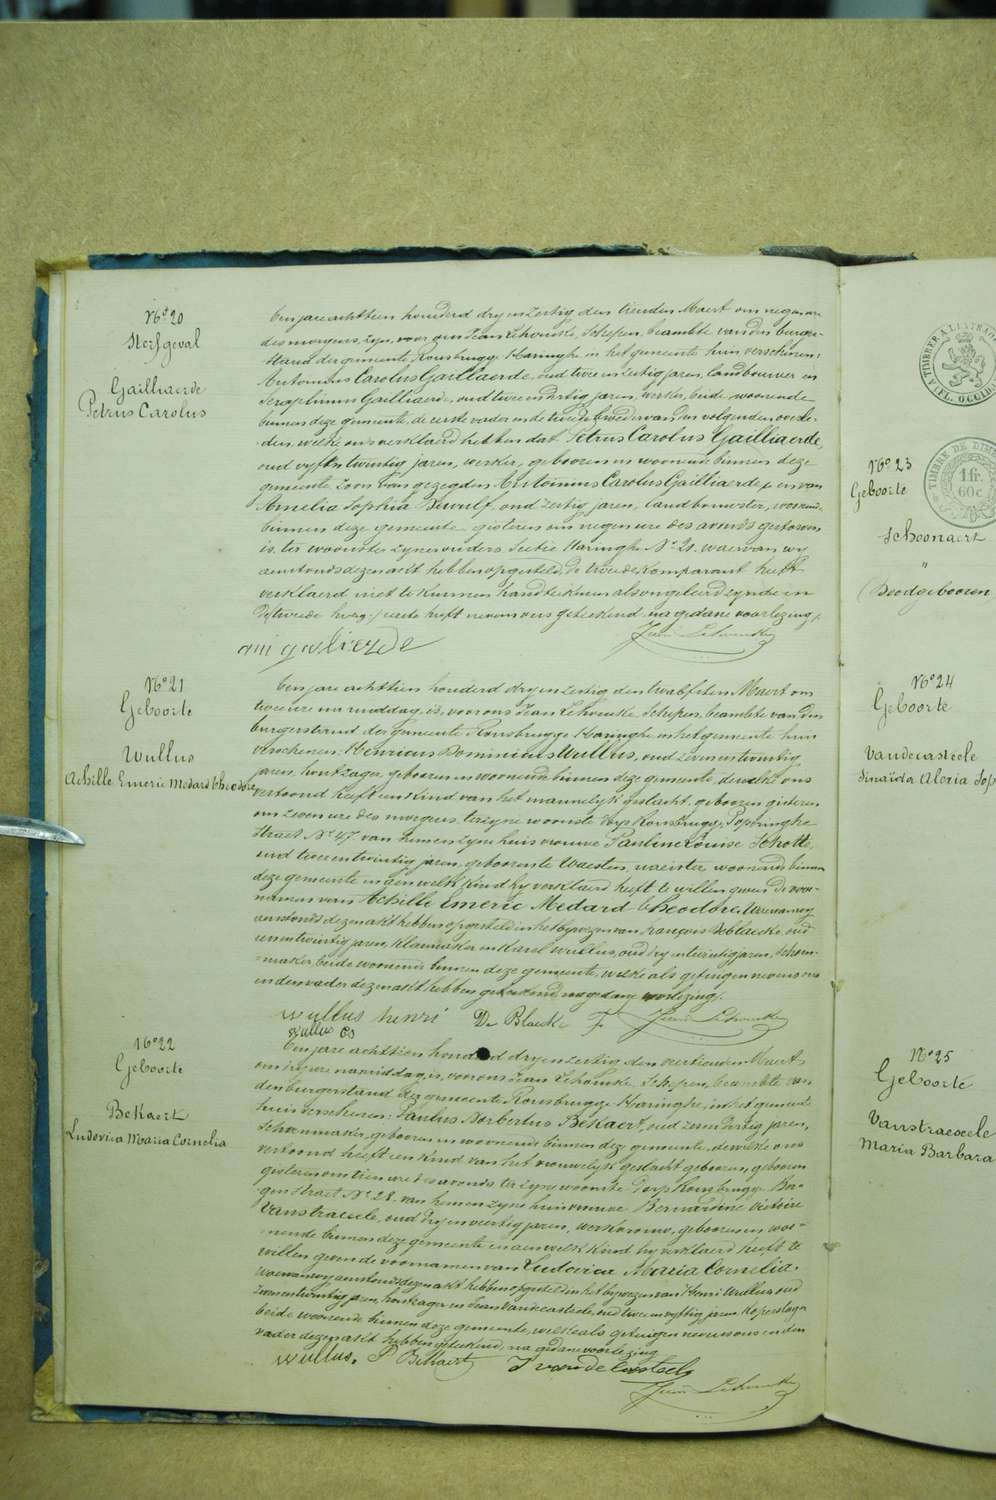 No 20
Sterfgeval
Gailliaerde
Petrus Carolus
Den jare achttien honderd dry en zestig den tienden Maert om negen ure
des morgens, zyn, voor ons Jean Lehoucke, Schepen, beambte van den burger-
stand der gemeente Rousbrugge Haringhe in het gemeente huis verschenen:
Antonius Carolus Gailliaerde, oud twee en zestig jaren, landbouwer en
Seraphinus Gailliaerde, oud twee en dertig jaren, werker, beide woonende
binnen deze gemeente, de eerste vader en de tweede broeder van den volgenden overle-
den, welke ons verklaerd hebben dat Petrus Carolus Gailliaerde,
oud vyf en twintig jaren, werker, geboren en woonende binnen deze
gemeente zoon van gezegden Antonius Carolus Gailliaerde en van
Amelia Sophia Dewulf, oud zestig jaren, landbouwster, woonende
binnen deze gemeente, gisteren om negen ure des avonds gestorven
is, ter woonste zyner ouders Sectie Haringhe No 20. waervan wy
aenstonds dezen akt hebben opgesteld, de tweede komparant heeft
verklaerd niet te kunnen handteekenen als ongeleerd zynde en
heeft nevens ons geteekend na gedane voorlezing.
Jean Lehoucke
No 21
Geboorte
Wullus
Achille Emeric Medard Theodore
Den jare achttien honderd dry en zestig den twaelfsten Maert om
twee ure na middag, is, voor ons Jean Lehoucke Schepen, beambte van den
burgerstand der gemeente Rousbrugge Haringhe in het gemeente huis
verschenen: Henricus Dominicus Wullus, oud zeven en twintig
jaren, houtzager, geboren en woonende binnen deze gemeente, dewelke ons
vertoond heeft een kind van het mannelyk geslacht, geboren gisteren
om zeven ure des morgens, ter zyne woonste dorp Rousbrugge, Poperinghe
straet No 47 van hem en zyne huisvrouwe Pauline Louise Schotte,
oud twee en twintig jaren, geboren te Waesten, naeister, woonende binnen
deze gemeente en aen welk kind hy verklaerd heeft te willen geven de voor-
namen van Achille Emeric Medard Theodore. Waervan wy
aenstonds dezen akt hebben opgesteld in het bywezen van François Deblaecke, oud
en twintig jaren, en Karel Wullus, oud dry en twintig jaren, schoen-
maker, beide woonende binnen deze gemeente, welke als getuigen nevens ons
en den vader dezen akt hebben geteekend, na gedane voorlezing.
Wullus henri De Blaecke F Jean Lehoucke
Wullus
No 22
Geboorte
Bekaert
Ludovica Maria Cornelia
Den jare achttien honderd dry en zestig den veertienden Maert
om dry ure namiddag, is, voor ons Jean Lehoucke Schepen, beambte van
den burgerstand der gemeente Rousbrugge Haringhe, in het gemeente
huis verschenen: Paulus Norbertus Bekaert, oud zeven dertig jaren,
schoenmaker, geboren en woonende binnen deze gemeente, dewelke ons
vertoond heeft een kind van het vrouwelyk geslacht geboren, geboren
gisteren om tien ure des avonds ter zyne woonste dorp Rousbrugge Ber-
gen straet No 28. van hem en zyne huisvrouwe Bernardine Victoire
Vanstraeseele, oud dry en veertig jaren, werkvrouw, geboren en woo-
nende binnen deze gemeente en aen welk kind hy verklaerd heeft te
willen geven de voornamen van Ludovica Maria Cornelia.
Waervan wy aenstonds dezen akt hebben opgesteld in het bywezen van Henri Wullus oud
zeven en twintig jaren, houtzager en Jean Vandecasteele, oud twee en vyftig jaren koperslager
beide woonende binnen deze gemeente, welke als getuigen nevens ons en den
vader dezen akt hebben geteekend, na gedane voorlezing
Wullus. P Bekaert J vandeCasteele
Jean Lehoucke
No 23
Geboorte
Schoonaert
"
(Doodgebooren
TIMBRE DE DIM
1 fr.
60 c.
No 24
Geboorte
Vandecasteele
Sinaïda Alexia Sop
No 25
Geboorte
Vanstraeseele
Maria Barbara